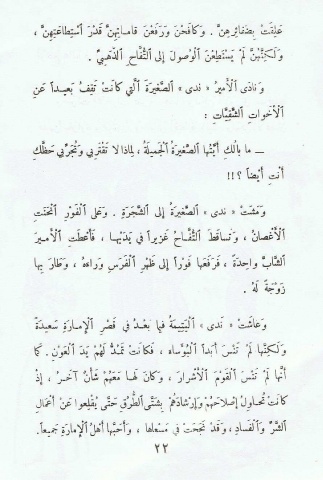 عَلِقَتْ بِضَفائِرِهِنَّ . وَكافَحْنَ وَرَفَعْنَ قاماتِهِنَّ قَدْرَ ٱسْتِطاعَتِهِنَّ ،
وَلٰكِنَّهُنَّ لَمْ يَسْتَطِعْنَ ٱلْوُصولَ إِلى ٱلتُّفّاحِ ٱلذَّهَبِيِّ .
وَنادَى ٱلْأَميرُ « ندى » ٱلصَّغيرَةَ ٱلَّتي كانَتْ تَقِفُ بَعيداً عَنِ
ٱلْأَخَواتِ ٱلشَّقِيّاتِ :
ــ ما بالُكِ أَيَّتُها ٱلصَّغيرَةُ ٱلْجَميلَةُ ، لِماذا لا تَقْتَرِبي وَتُجَرِّبي حَظَّكِ
أَنْتِ أَيْضاً ؟ !!
وَمَشَتْ « ندى » ٱلصَّغيرَةُ إِلى ٱلشَّجَرَةِ . وَعَلى ٱلْفَوْرِ ٱنْحَنَتِ
ٱلْأَغْصانُ ، وَتَساقَطَ ٱلتُّفّاحُ غَزيراً في يَدَيْها ، فَأَعْطَتِ ٱلْأَميرَ
ٱلشّابَّ واحِدَةً ، فَرَفَعَها فَوْراً إِلى ظَهْرِ ٱلْفَرَسِ وَراءَهُ ، وَطارَ بِها
زَوْجَةً لَهُ .
وَعاشَتْ « ندى » ٱلْيَتيمَةُ فيما بَعْدُ في قَصْرِ ٱلْإِمارَةِ سَعيدَةً
وَلٰكِنَّها لَمْ تَنْسَ أَبَداً ٱلْبُؤَساءَ ، فَكانَتْ تَمُدُّ لَهُمْ يَدَ ٱلْعَوْنِ . كَما
أَنَّها لَمْ تَنْسَ ٱلْقَوْمَ ٱلْأَشْرارَ ، وَكانَ لَها مَعَهُمْ شَأْنٌ آخَرُ ، إِذْ
كانَتْ تُحاوِلُ إِصْلاحَهُمْ وَإِرْشادَهُمْ بِشَتَّى ٱلطُّرُقِ حَتَّى يُقْلِعوا عَنْ أَعْمالِ
ٱلشَّرِّ وَٱلْفَسادِ ، وَقَدْ نَجَحَتْ في مَسْعاها ، وَأَحَبَّها أَهْلُ ٱلْإِمارَةِ جَميعاً.
٢٢